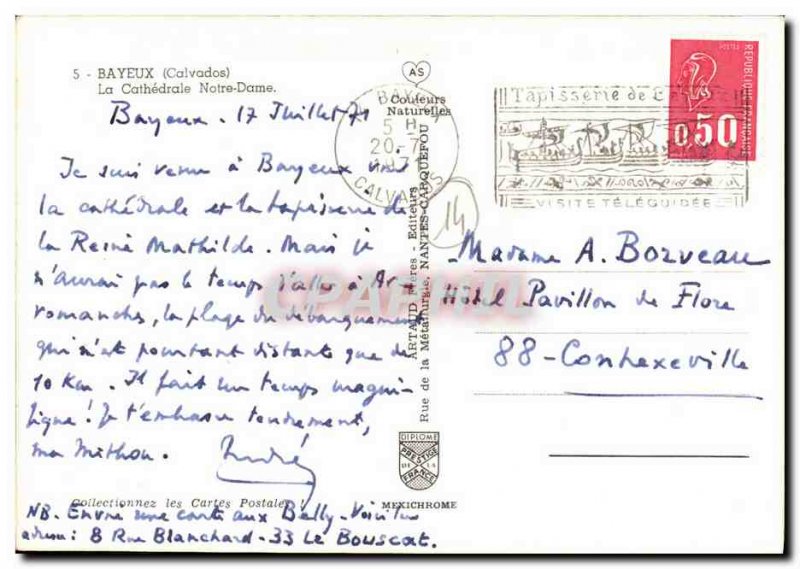 5 - BAYEUX (Calvados)
La Cathédrale Notre-Dame.
Bayeux. 17 Juillet 71
Je suis venu à Bayeux voir
la cathédrale et la tapisserie de
la Reine Mathilde. Mais je
n'aurai pas le temps d'aller à Ar-
romanches, la plage du débarquement
qui n'est pourtant distante que de
10 Km. Il fait un temps magni-
fique ! Je t'embrasse tendrement,
ma
André
Collectionnez les Cartes Postales !
NB. Envoie une carte aux Belly. Voici leur
adresse : 8 Rue Blanchard - 33 Le Bouscat.
AS
Couleurs
Naturelles
ARTAUD Frères - Editeurs
Rue de la Métallurgie, NANTES-CARQUEFOU
DIPLOME
PRESTIGE
DE LA
FRANCE
MEXICHROME
BAYEUX
5 H
20.7
1971
CALVADOS
14
Tapisserie de
VISITE TÉLÉGUIDÉE
REPUBLIQUE FRANÇAISE
0,50
Madame A. Borveau
Hôtel Pavillon de Flore
88 - Contrexeville
CPAPHIL